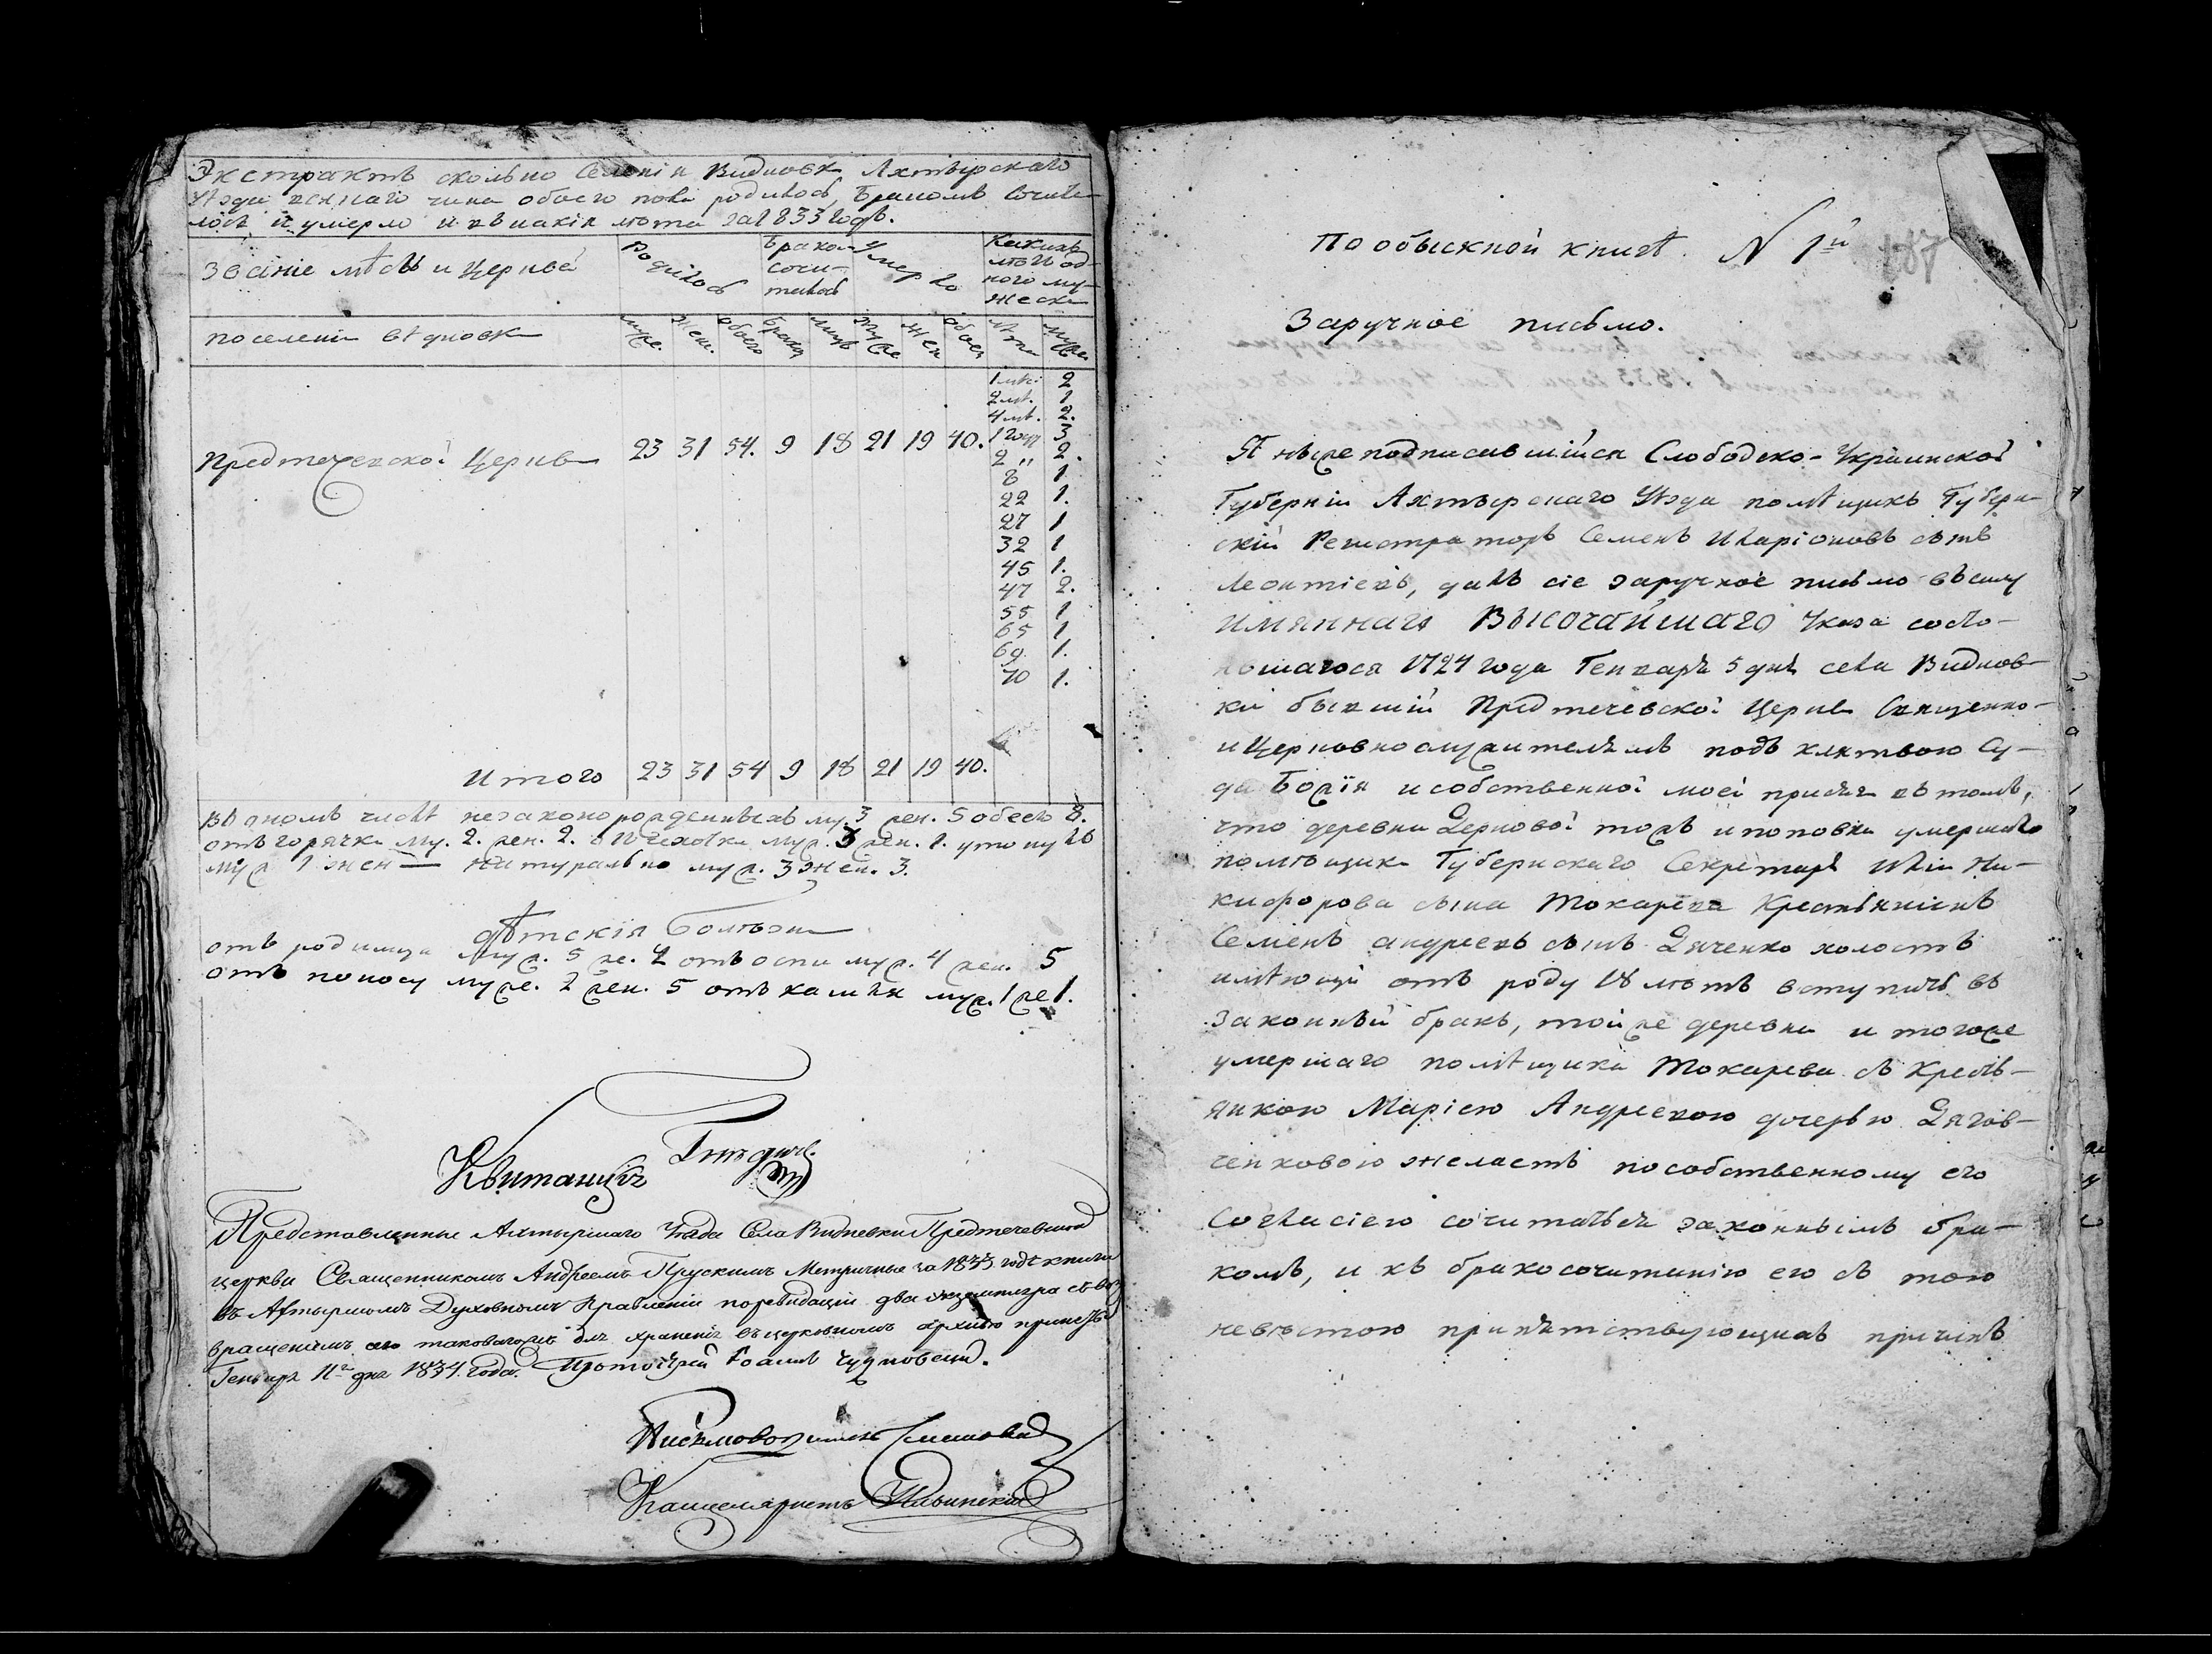 Экстрактъ сколько Селенія Видновки Ахтырскаго
Уѣзда всякаго чина обоего пола родилось, Бракомъ сочита-
лось и умерло и въ какія лѣта за 1833 годъ.
Званіе мѣстъ и Церквей
Родилось
Бракомъ
сочи-
талось
Умерло
Какихъ
лѣтъ од-
ного му-
жеска
Поселенія Видновки
муже. жен. обоего бракъ муже. жен. обоего лѣта
1 мѣ. 2
2 мѣ. 1
4 мѣ. 2.
Предтечевской Церкви 23 31 54. 9 18 21 19 40. 1 годъ 3
2 " 2.
8 1.
22 1.
27 1
32 1
45 1.
47 2.
55 1
65 1
69. 1.
70 1.
Итого 23 31 54 9 18 21 19 40.
Въ ономъ числѣ незаконорожденныхъ му. 3 жен. 5 обоего 8.
отъ горячки му. 2. жен. 2. отъ чехотки муж. 3 жен. 1. утонулъ
муж 1 жен — натурально муж. 3 жен. 3.
дѣтскія болѣзни
отъ родимца муж. 5 же. 2 отъ оспи муж. 4 жен. 5
отъ поносу муже. 2 жен. 5 отъ кашля муж. 1 же 1.
Квитанція
Представленные Ахтырскаго Уѣзда Села Видневки Предтечевской
церкви Священникомъ Андреемъ Прускимъ Метричные за 1833 годъ книги
въ Ахтырскомъ Духовномъ Правленіи по ревидаціи два экземпляра съ воз
вращеніемъ ему таковагожъ для храненія въ церковномъ архиве приняты
Генваря 11го дня 1834. Года. Протоіерей Іоаннъ Чудновскій.
Письмоводитель
Канцеляристъ
По обыскной книгѣ. N 1й
187
Заручное письмо.
Я нижеподписавшійся Слободско-Украинской
Губерніи Ахтырскаго Уѣзда помѣщикъ Губерн-
скій Регистраторъ Семенъ Иларіоновъ сынъ
Леонтіевъ, далъ сіе заручное письмо въ силу
Имяннаго ВЫСОЧАЙШАГО Указа состо-
явшагося 1724 года Генваря 5 дня села Виднов-
ки бывшій Предтечевской Церкви Священно-
и Церковнослужителямъ подъ клятвою Су-
да Божія и собственной моей присяги въ томъ,
что деревни Дерновой тожъ и поповки умершаго
помѣщика Губернскаго Секретаря Иліи Ни-
кифорова сына Токарева Крестьянинъ
Семенъ андреевъ сынъ Дяченко холостъ
имѣющій отъ роду 18 лѣтъ вступить въ
законный бракъ, тойже деревни и тогоже
умершаго помѣщика Токарева съ Кресть-
янкою Маріею Андреевою дочерью Дягов-
ченковою желаетъ по собственному его
Согласію сочитаться законнымъ бра-
комъ, и къ бракосочитанію его съ тою
невѣстою припятствующихъ причинъ